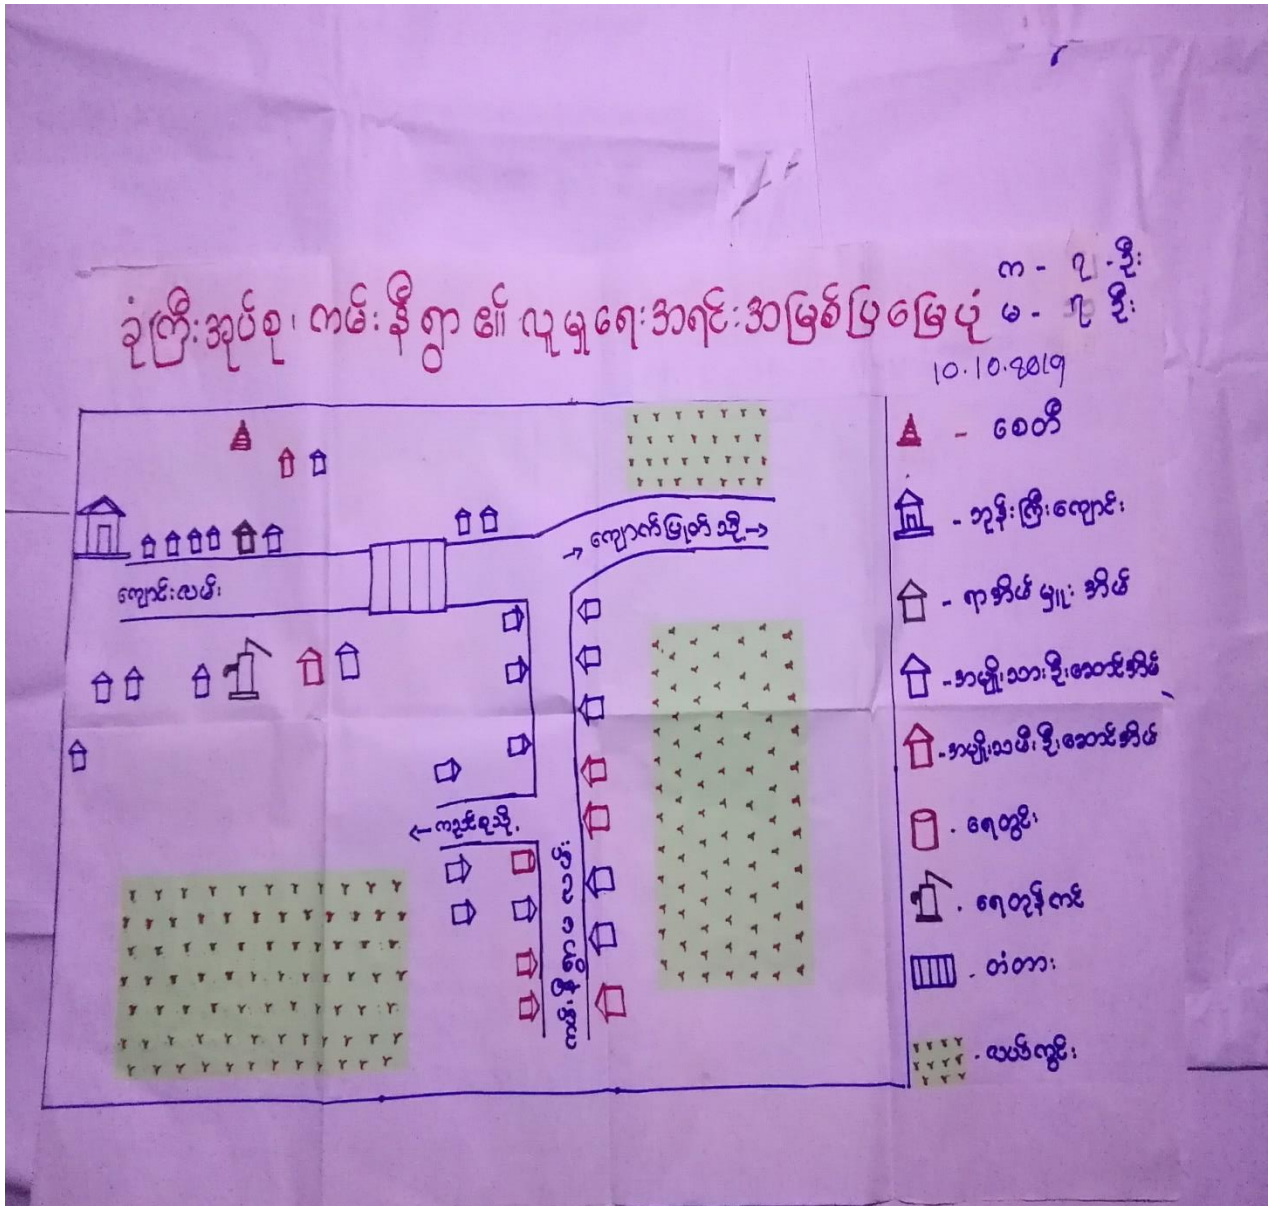 ခုံကြီးအုပ်စု၊ ကမ်းနီရွာ၏ လူမှုရေးအရင်းအမြစ်ပြမြေပုံ
က - ၇ - ဦး
မ - ၇ ဦး
10.10.2019
ကျောက်ဖြတ်သို့
ကျောင်းလမ်း
ကညင်ငူသို့
- စေတီ
- ဘုန်းကြီးကျောင်း
- ရာအိမ်မှူး အိမ်
- အမျိုးသားဦးဆောင်အိမ်
- အမျိုးသမီးဦးဆောင်အိမ်
- ရေတွင်း
- ရေတုန်ကင်
- တံတား
- လယ်ကွင်း